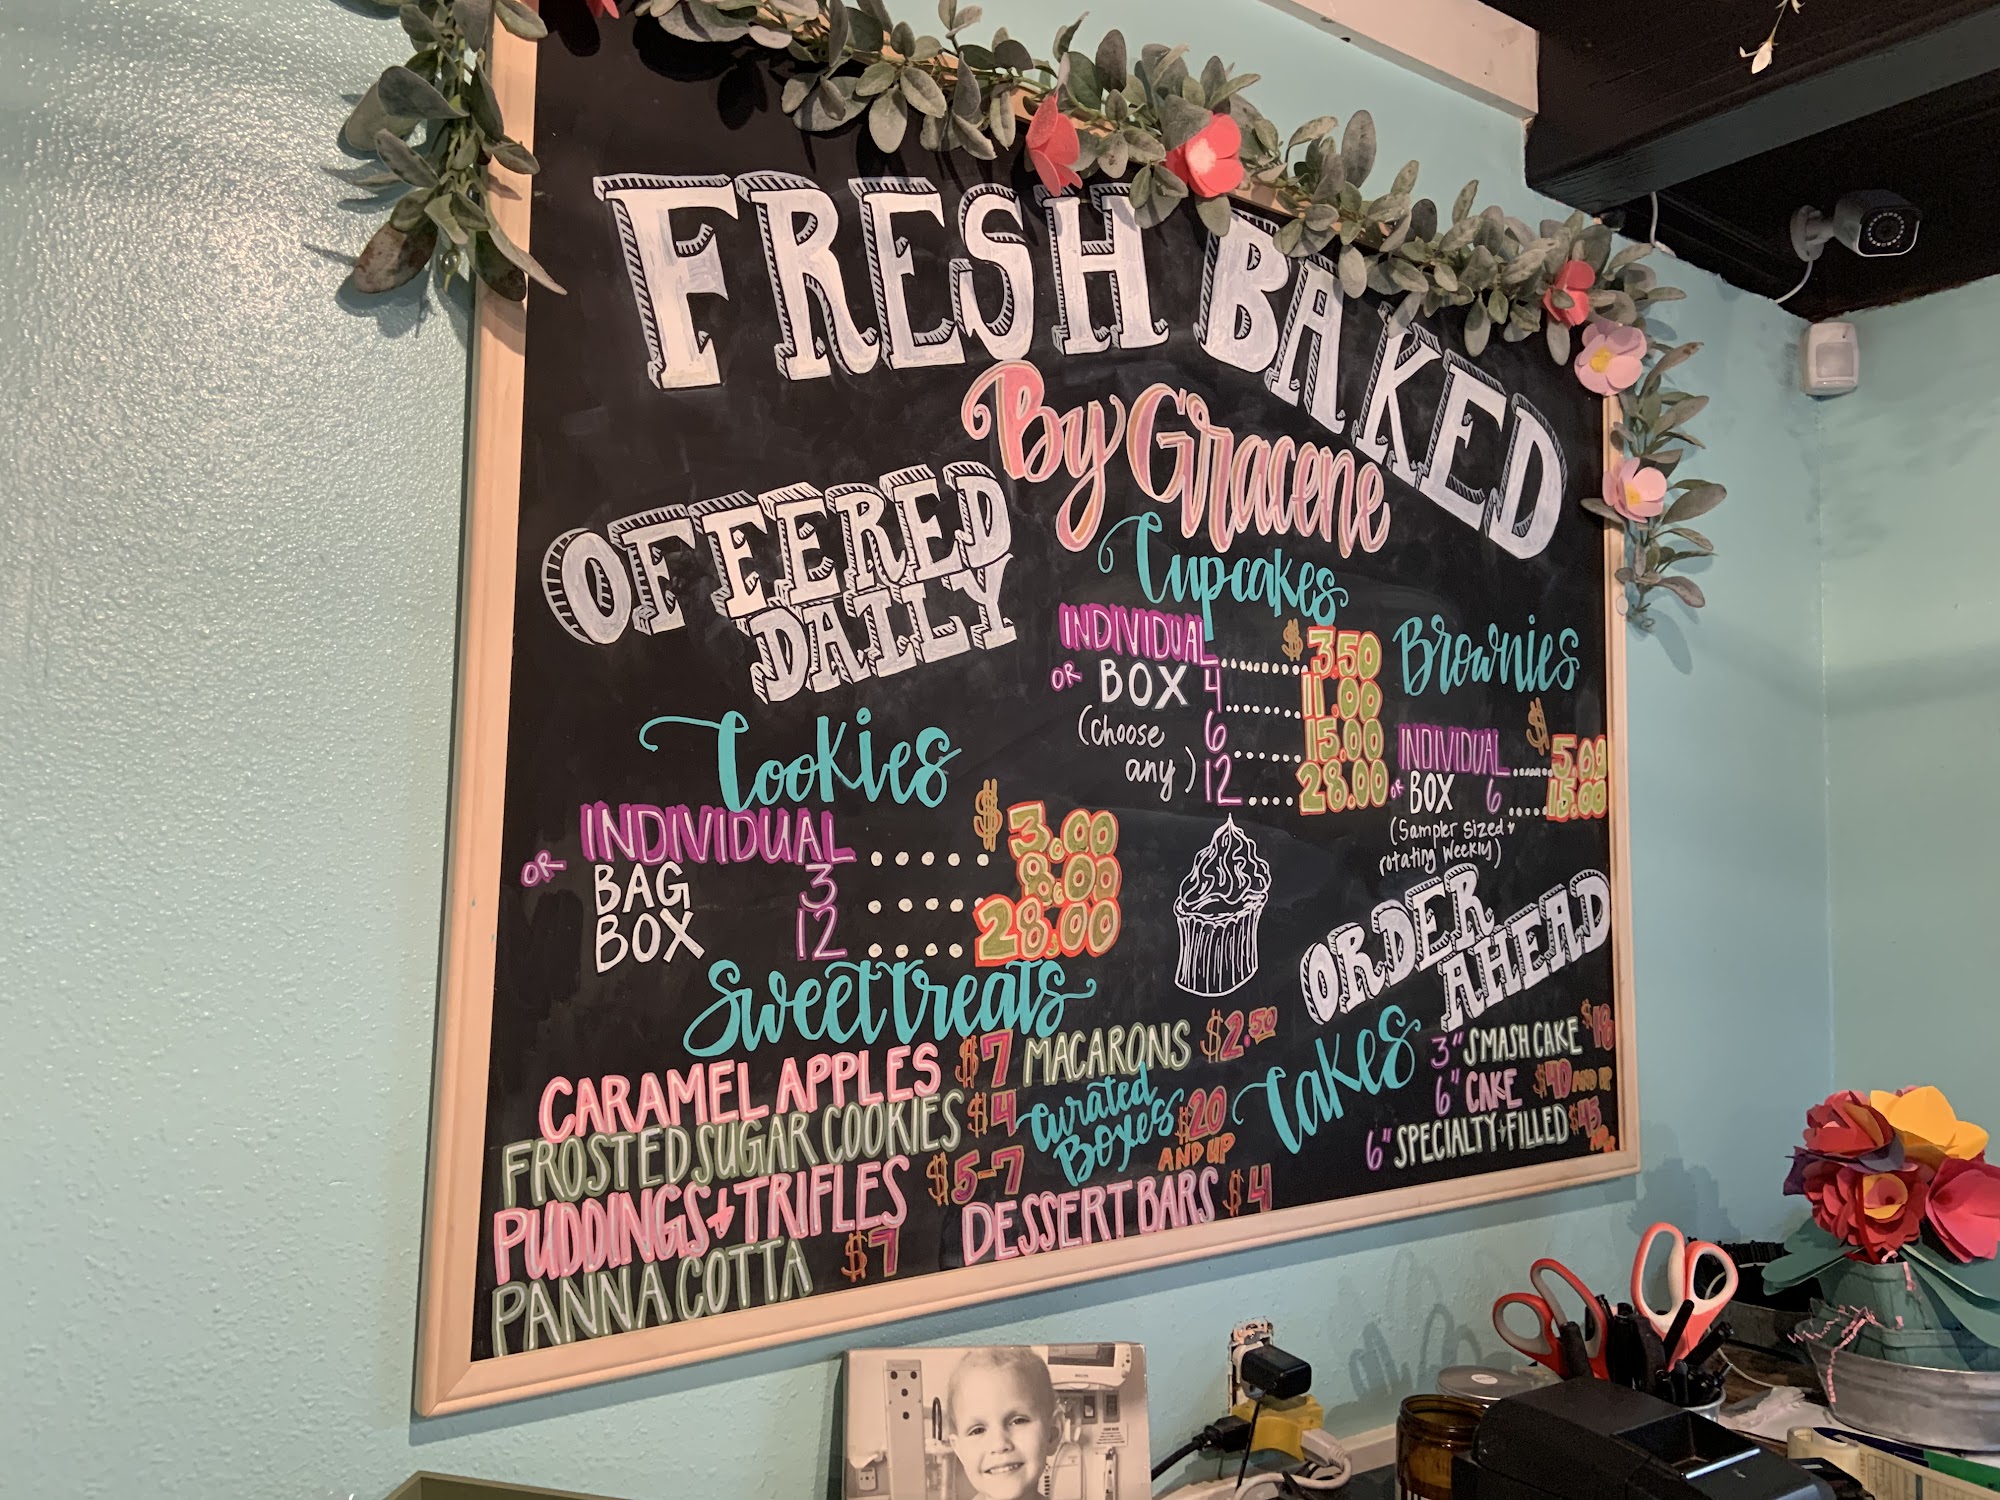 FRESH BAKED
By Gracene
OFFERED
DAILY
Cookies
INDIVIDUAL .... $3.00
OR BAG 3 .... 8.00
BOX 12 .... 28.00
Cupcakes
INDIVIDUAL ....... $3.50
OR BOX 4 ....... 11.00
(Choose 6 ..... 15.00
any) 12 .... 28.00
Brownies
INDIVIDUAL ..... $5.00
OR BOX 6 .... 15.00
(Sampler Sized +
rotating weekly)
Sweet treats
CARAMEL APPLES $7
FROSTED SUGAR COOKIES $4
PUDDINGS + TRIFLES $5-7
PANNA COTTA $7
MACARONS $2.50
Curated
Boxes $20
AND UP
DESSERT BARS $4
ORDER
AHEAD
Cakes
3" SMASH CAKE
6" CAKE $40 AND UP
6" SPECIALTY + FILLED $45